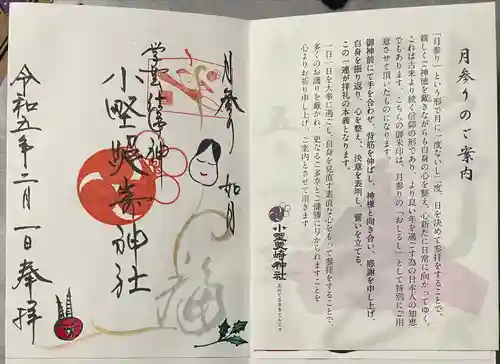 月参りのご案内
「月参り」という形で月に一度ないし二度、日を決めて参拝をすることで、
親しくご神徳を戴きながらも自身の心を整え、心新たに日常に向かってゆく。
これは古来より続く信仰の形であり、より良い年を過ごす為の日本人の知恵
でもあります。こちらの御朱印は、月参りの「おしるし」として特別にご用
意させて頂いたものになります。
御神前にて手を合わせ、背筋を伸ばし、神様と向き合い、感謝を申し上げ、
自身を振り返り、心を整え、決意を表明し、誓いを立てる。
この一連が拝礼の本義となります。
一日一日を大事に過ごし、自身を見直す素直な心をもって参拝をすることで、
多くのお護りを戴かれ、更なるご多幸とご健勝に与かられますことを
心よりお祈り申し上げ、ご案内とさせて頂きます
小埜照崎神社
おのてるさきじんじゃ
月参り 如月
福
小埜照嵜神社
令和五年二月一日奉拝